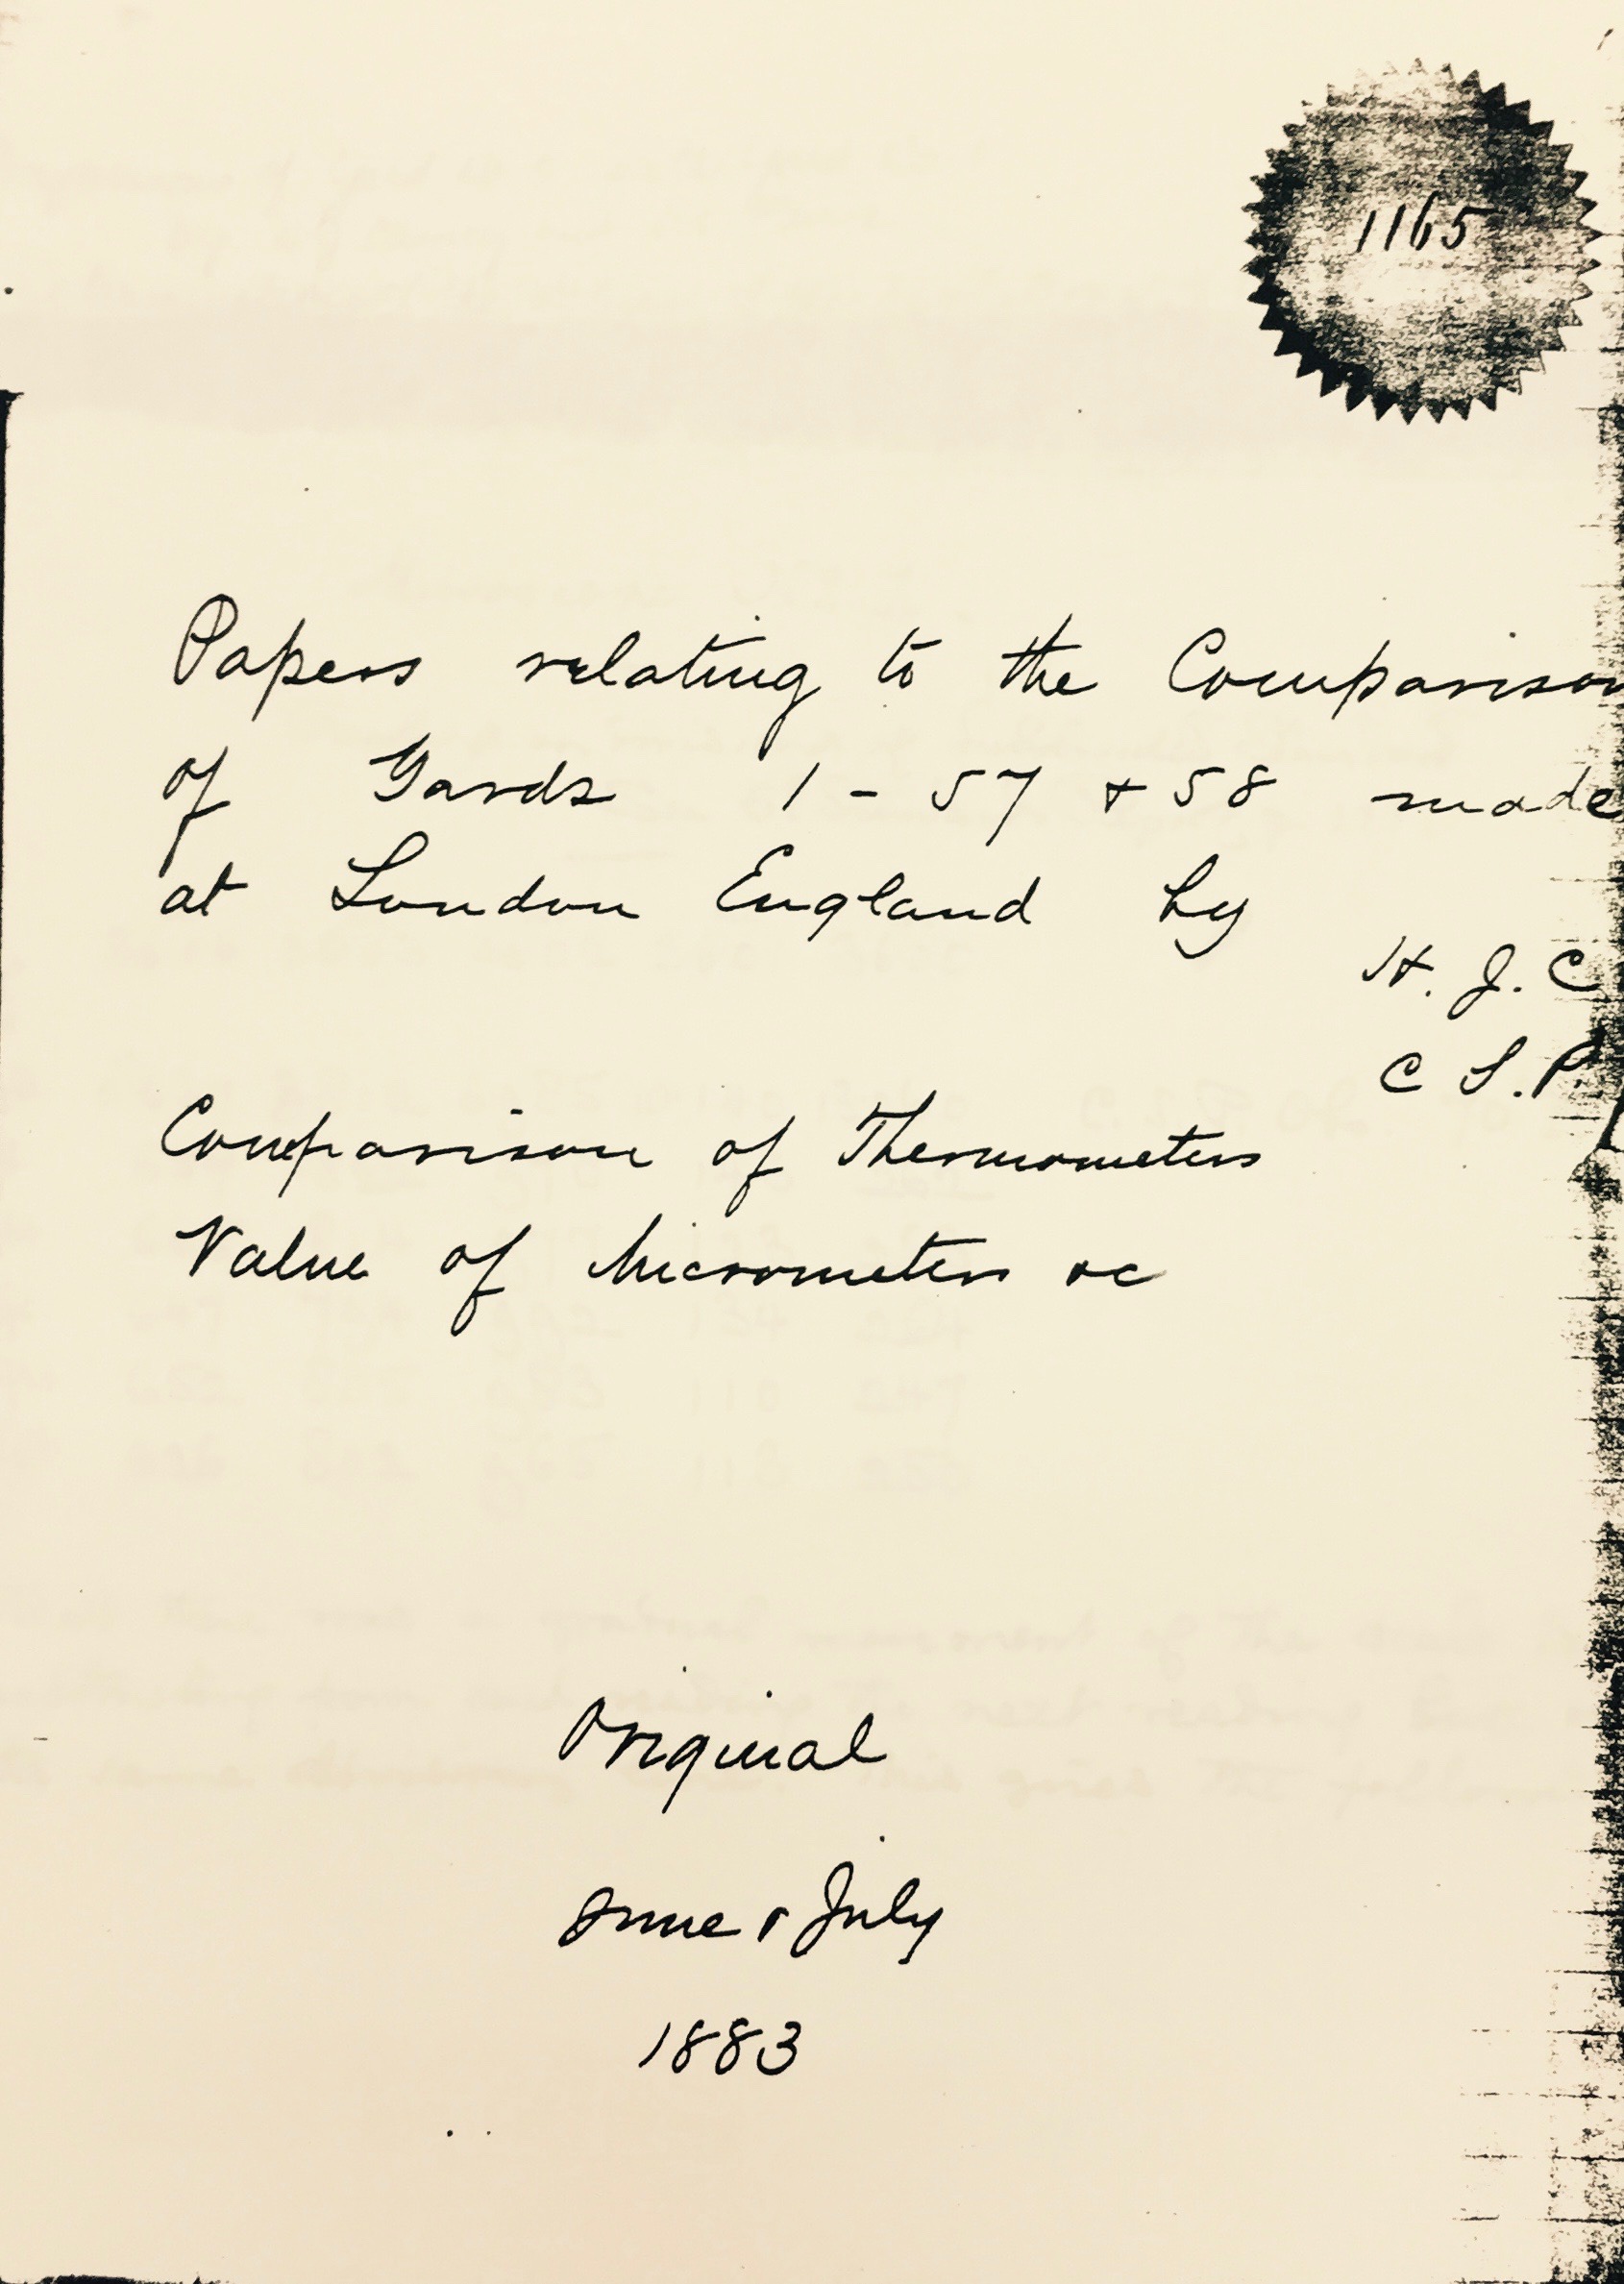 1165
Papers relating to the Comparison
of Yards 1 - 57 & 58 made
at London England by
H. J. C
C S. P.
Comparison of Thermometers
Value of Micrometers &c
Original
June & July
1883